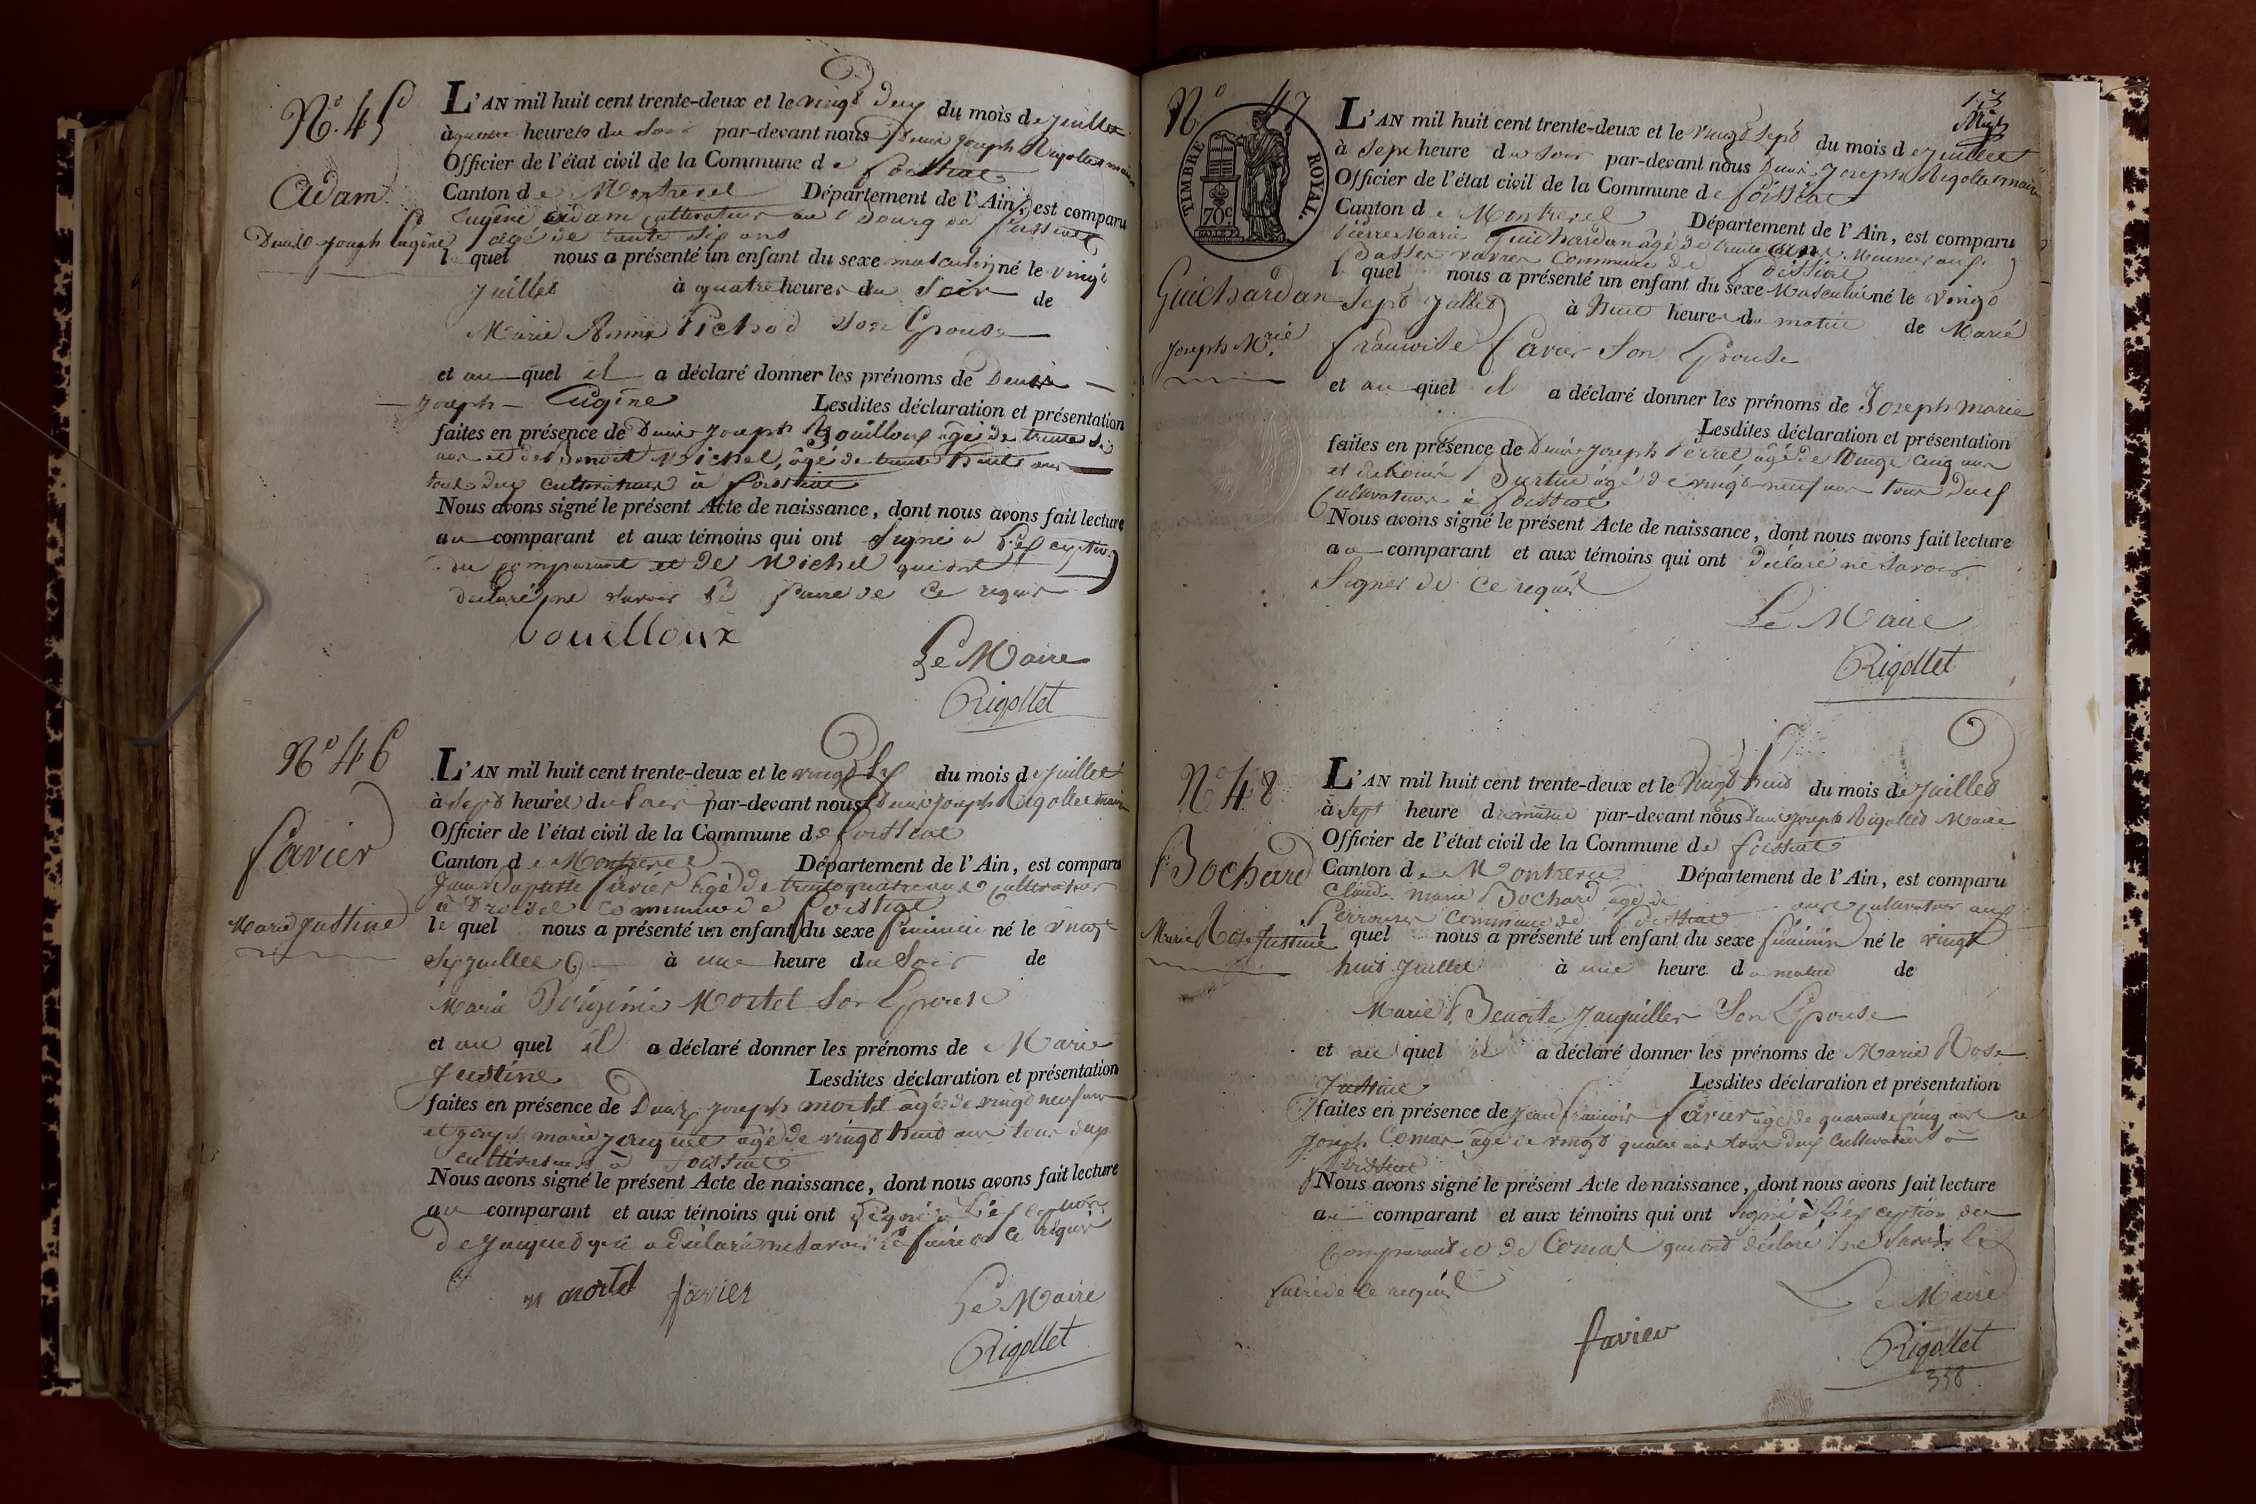 N.° 45
Adam
Denis Joseph Eugène
L'AN mil huit cent trente-deux et le vingt deux du mois de juillet
à quatre heures du soir par-devant nous Denis Joseph Rigollet maire
Officier de l'état civil de la Commune de foissiat
Canton de Montrevel Département de l'Ain, est comparu
Eugène adam cultivateur au bourg de foissiat
âgé de trente six ans
lequel nous a présenté un enfant du sexe masculin né le vingt
juillet à quatre heures du soir de
Marie Anne Pichod son Epouse
et au quel il a déclaré donner les prénoms de Denis
Joseph Eugène Lesdites déclaration et présentation
faites en présence de Denis Joseph Bouilloux âgé de trente six
ans et de Benoit Michel, âgé de trente huit ans
tous deux cultivateurs à foissiat
Nous avons signé le présent Acte de naissance, dont nous avons fait lecture
au comparant et aux témoins qui ont signé à l'exception
du comparant et de Michel qui ont
déclaré ne savoir le faire de ce requis
bouilloux
Le Maire
Rigollet
N° 46
favier
Marie Justine
L'AN mil huit cent trente-deux et le vingt six du mois de juillet
à sept heures du soir par-devant nous Denis Joseph Rigollet maire
Officier de l'état civil de la Commune de foissiat
Canton de Montrevel Département de l'Ain, est comparu
Jean Baptiste favier âgé de trente quatre ans cultivateur
à commune de foissiat
le quel nous a présenté un enfant du sexe féminin né le vingt
six juillet à une heure du soir de
Marie Virginie Mortel son Epouse
et au quel il a déclaré donner les prénoms de Marie
Justine Lesdites déclaration et présentation
faites en présence de Denis Joseph mortel âgé de vingt neuf ans
et joseph marie jacquet âgé de vingt huit ans tous deux
cultivateurs à foissiat
Nous avons signé le présent Acte de naissance, dont nous avons fait lecture
au comparant et aux témoins qui ont signé à l'exception
de jacquet qui a déclaré ne savoir le faire de ce requis
mortel favier
Le Maire
Rigollet
N° 47
TIMBRE ROYAL.
70c
Guichardan
Joseph M.rie
L'AN mil huit cent trente-deux et le vingt sept du mois de juillet
à sept heure du soir par-devant nous Denis Joseph Rigollet maire
Officier de l'état civil de la Commune de foissiat
Canton de Montrevel Département de l'Ain, est comparu
Pierre Marie Guichardan âgé de trente
commune de foissiat
lequel nous a présenté un enfant du sexe Masculin né le vingt
sept juillet à huit heures du matin de Marie
francoise favier son Epouse
et au quel il a déclaré donner les prénoms de Joseph marie
Lesdites déclaration et présentation
faites en présence de Denis Joseph Perret âgé de vingt cinq ans
et de âgé de vingt neuf ans tous deux
cultivateurs à foissiat
Nous avons signé le présent Acte de naissance, dont nous avons fait lecture
au comparant et aux témoins qui ont déclaré ne savoir
signer de ce requis
Le Maire
Rigollet
N° 48
Bochard
Marie Rose Justine
L'AN mil huit cent trente-deux et le vingt huit du mois de juillet
à sept heure du matin par-devant nous Denis Joseph Rigollet Maire
Officier de l'état civil de la Commune de foissiat
Canton de Montrevel Département de l'Ain, est comparu
Claude marie Bochard âgé de ans cultivateur aux
commune de foissiat
lequel nous a présenté un enfant du sexe féminin né le vingt
huit juillet à une heure du matin de
Marie Benoite son Epouse
et au quel il a déclaré donner les prénoms de Marie Rose
Justine Lesdites déclaration et présentation
faites en présence de Jean françois favier âgé de quarante cinq ans et
Joseph Comas âgé de vingt quatre ans tous deux cultivateurs à
foissiat
Nous avons signé le présent Acte de naissance, dont nous avons fait lecture
au comparant et aux témoins qui ont signé à l'exception du
comparant et de Comas qui ont déclaré ne savoir le
faire de ce requis
favier
Le Maire
Rigollet
358